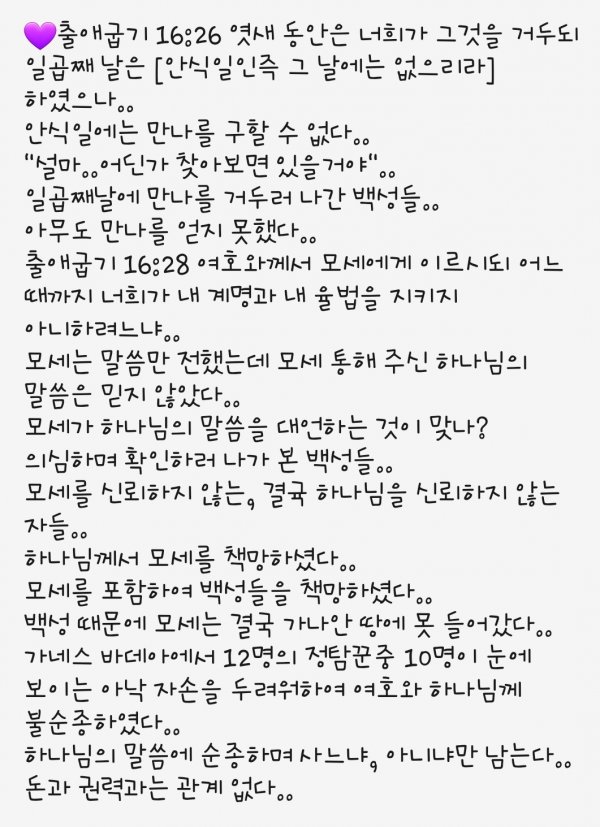 💜출애굽기 16:26 엿새 동안은 너희가 그것을 거두되
일곱째 날은 [안식일인즉 그 날에는 없으리라]
하였으나..
안식일에는 만나를 구할 수 없다..
"설마..어딘가 찾아보면 있을거야"..
일곱째날에 만나를 거두러 나간 백성들..
아무도 만나를 얻지 못했다..
출애굽기 16:28 여호와께서 모세에게 이르시되 어느
때까지 너희가 내 계명과 내 율법을 지키지
아니하려느냐..
모세는 말씀만 전했는데 모세 통해 주신 하나님의
말씀은 믿지 않았다..
모세가 하나님의 말씀을 대언하는 것이 맞나?
의심하며 확인하러 나가 본 백성들..
모세를 신뢰하지 않는, 결국 하나님을 신뢰하지 않는
자들..
하나님께서 모세를 책망하셨다..
모세를 포함하여 백성들을 책망하셨다..
백성 때문에 모세는 결국 가나안 땅에 못 들어갔다..
가네스 바데아에서 12명의 정탐꾼중 10명이 눈에
보이는 아낙 자손을 두려워하여 여호와 하나님께
불순종하였다..
하나님의 말씀에 순종하며 사느냐, 아니냐만 남는다..
돈과 권력과는 관계 없다..